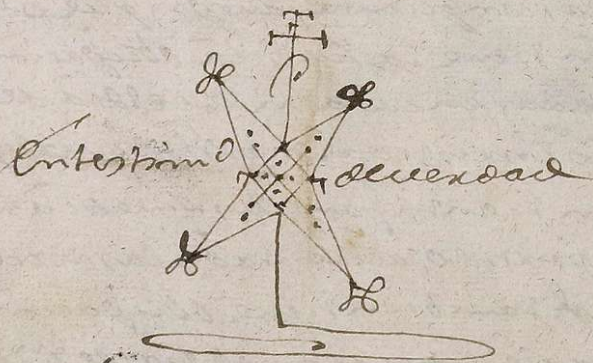 En testimº de verdad